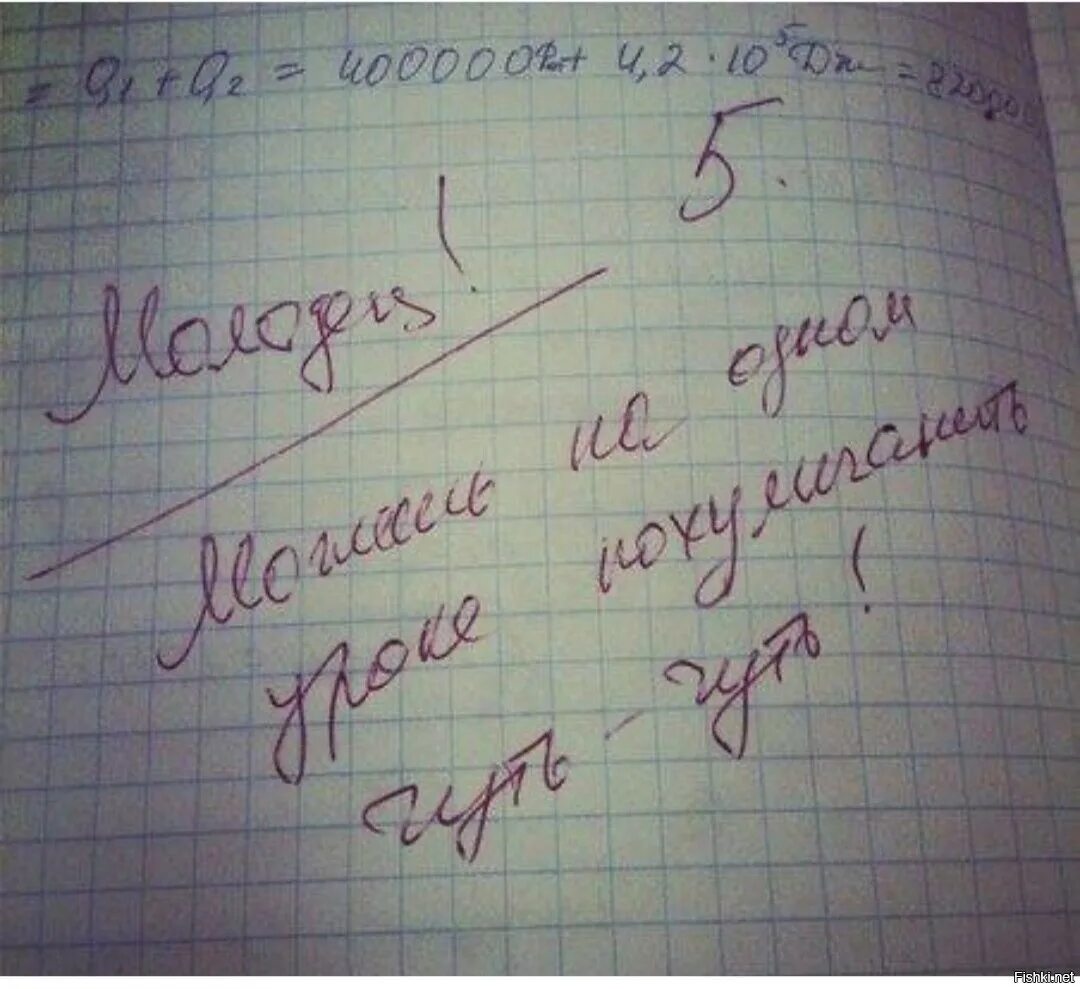 = Q₁ + Q₂ = 400000Дж + 4,2 · 10⁵ Дж = 820000
5.
Молодец!
Можешь на одном
уроке похулиганить
чуть - чуть!
Fishki.net